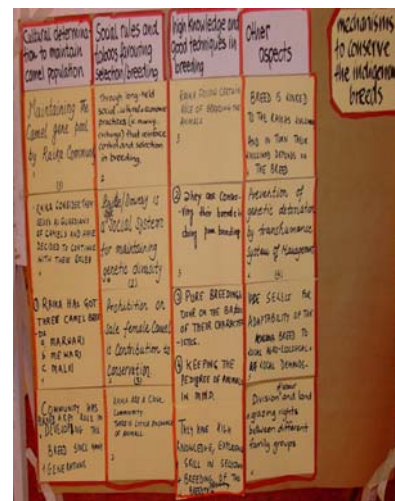 Cultural determina-
tion to maintain
camel population
Maintaining the
Camel gene pool
by Raika Community
(3)
RAIKA CONSIDER THEM
SELVES AS GUARDIANS
OF CAMELS AND HAVE
DECIDED TO CONTINUE
WITH THEIR ROLES
① RAIKA HAS GOT
THREE CAMEL BREE-
DS
MARWARI
MEWARI
MALVI
COMMUNITY HAS
ROLE IN
DEVELOPING THE
BREED SINCE MANY
GENERATIONS
Social rules and
taboos favouring
selection/breeding
Through long-held
social cultural economic
practices (ie many
exchange) that reinforce
control and selection
in breeding.
2
/Dowery is
a Social System
for maintaining
genetic diversity
(2)
Prohibition on
Sale female Camel
is Contribution to
Conservation.
(3)
RAIKA ARE A CLOSE
COMMUNITY
THERE IS LITTLE EXCHANGE
OF ANIMALS
2
high Knowledge and
Good techniques in
breeding
RAIKA FOLLOW CERTAIN
RULE OF BREEDING THE
ANIMALS
3
② They are Conser-
ving their breeds by
doing pure breeding
3
③ PURE BREEDINGS
DONE ON THE BASIS
OF THEIR CHARACTER
-ISTICS.
④ KEEPING THE
PEDIGREE OF ANIMALS
IN MIND.
THEY HAVE HIGH
KNOWLEDGE,
SKILL IN SELECTION
+ BREEDING OF THE
Other
aspects
BREED IS LINKED
TO THE RAIKAS
AND IN TURN THEIR
DEPENDS ON
THE BREED
Prevention of
genetic deterioration
by transhumance
System of Management
(4)
SKILLS FOR
ADAPTABILITY OF THE
BREED TO
LOCAL AGRO-ECOLOGICAL
LOCAL DEMANDS-
Labour
Division and land
& grazing rights
between different
family groups
mechanisms
to conserve
the indigenous
breeds